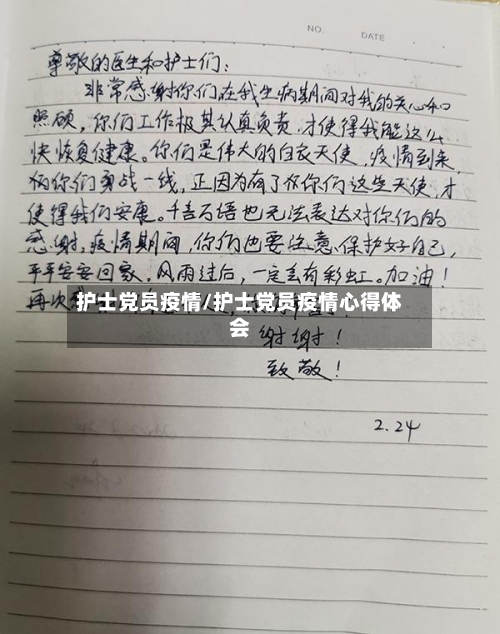 NO. DATE
尊敬的医生和护士们：
非常感谢你们在我生病期间对我的关心和
照顾，你们工作极其认真负责，才使得我能这么
快恢复健康。你们是伟大的白衣天使，疫情到来，
你们奋战一线，正因为有了你们这些天使，才
使得我们安康。千言万语也无法表达对你们的
感谢，疫情期间，你们也要注意保护好自己，
平平安安回家，风雨过后，一定会有彩虹。加油！
再次
护士党员疫情/护士党员疫情心得体
会
谢谢！
致敬！
2.24